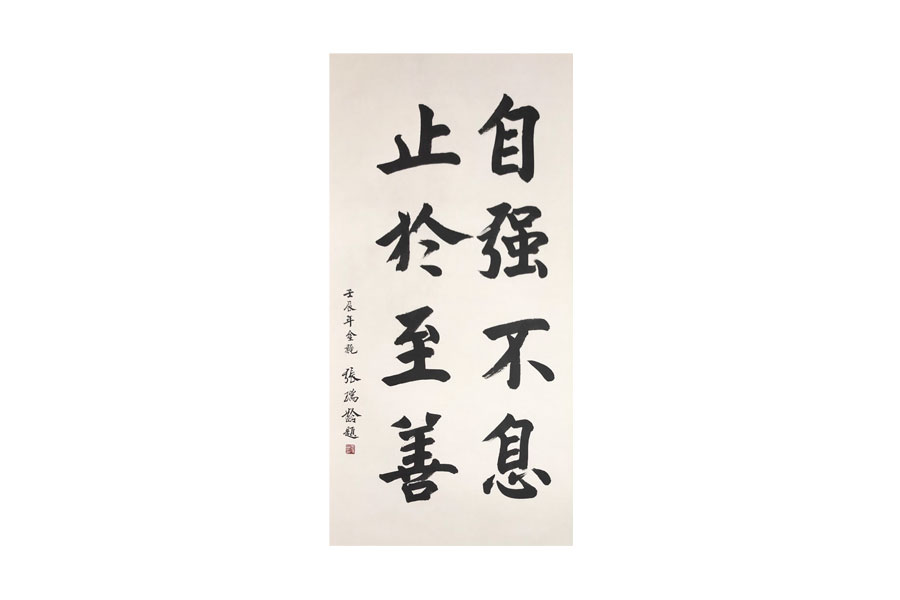 自强不息
止於至善
壬辰年金秋 張瑞齡題